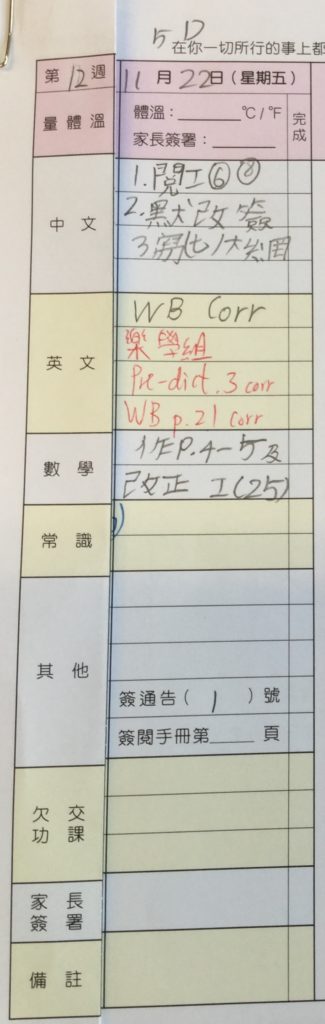 5D
在你一切所行的事上都
第12週 11月22日(星期五)
量體溫 體溫:______ °C/°F
家長簽署:______
完成
中文
1.閱工⑥⑧
2.默改簽
英文
WB Corr
樂學組
Pre-dict.3 corr
WB p.21 corr
數學
作P.4-5及
改正 工(25)
常識
其他
簽通告( 1 )號
簽閱手冊第____頁
欠交功課
家長簽署
備註